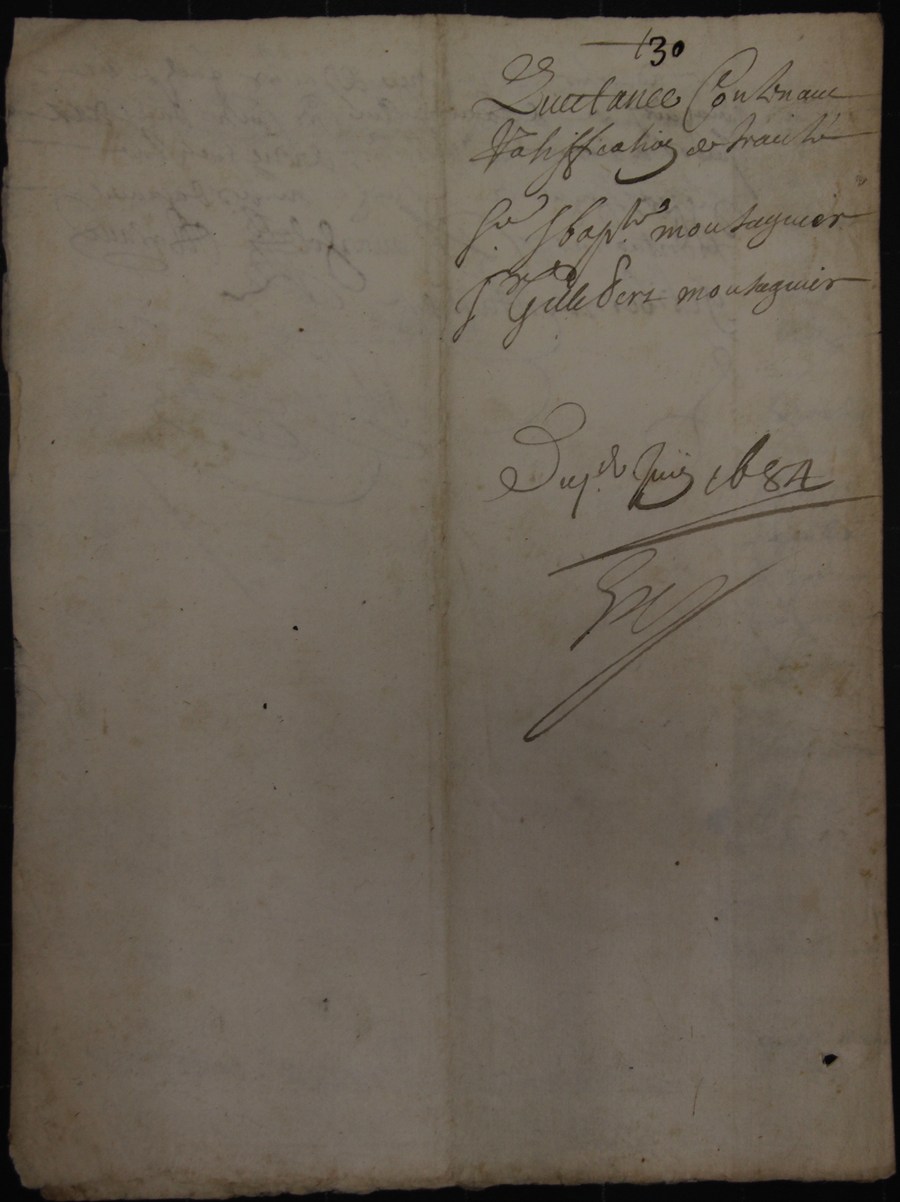 130
Quittance Contenant
Ratiffication de traicté
Sr. Jbapte montagnier
Sr Gillbert montagnier
Du de Juin 1684